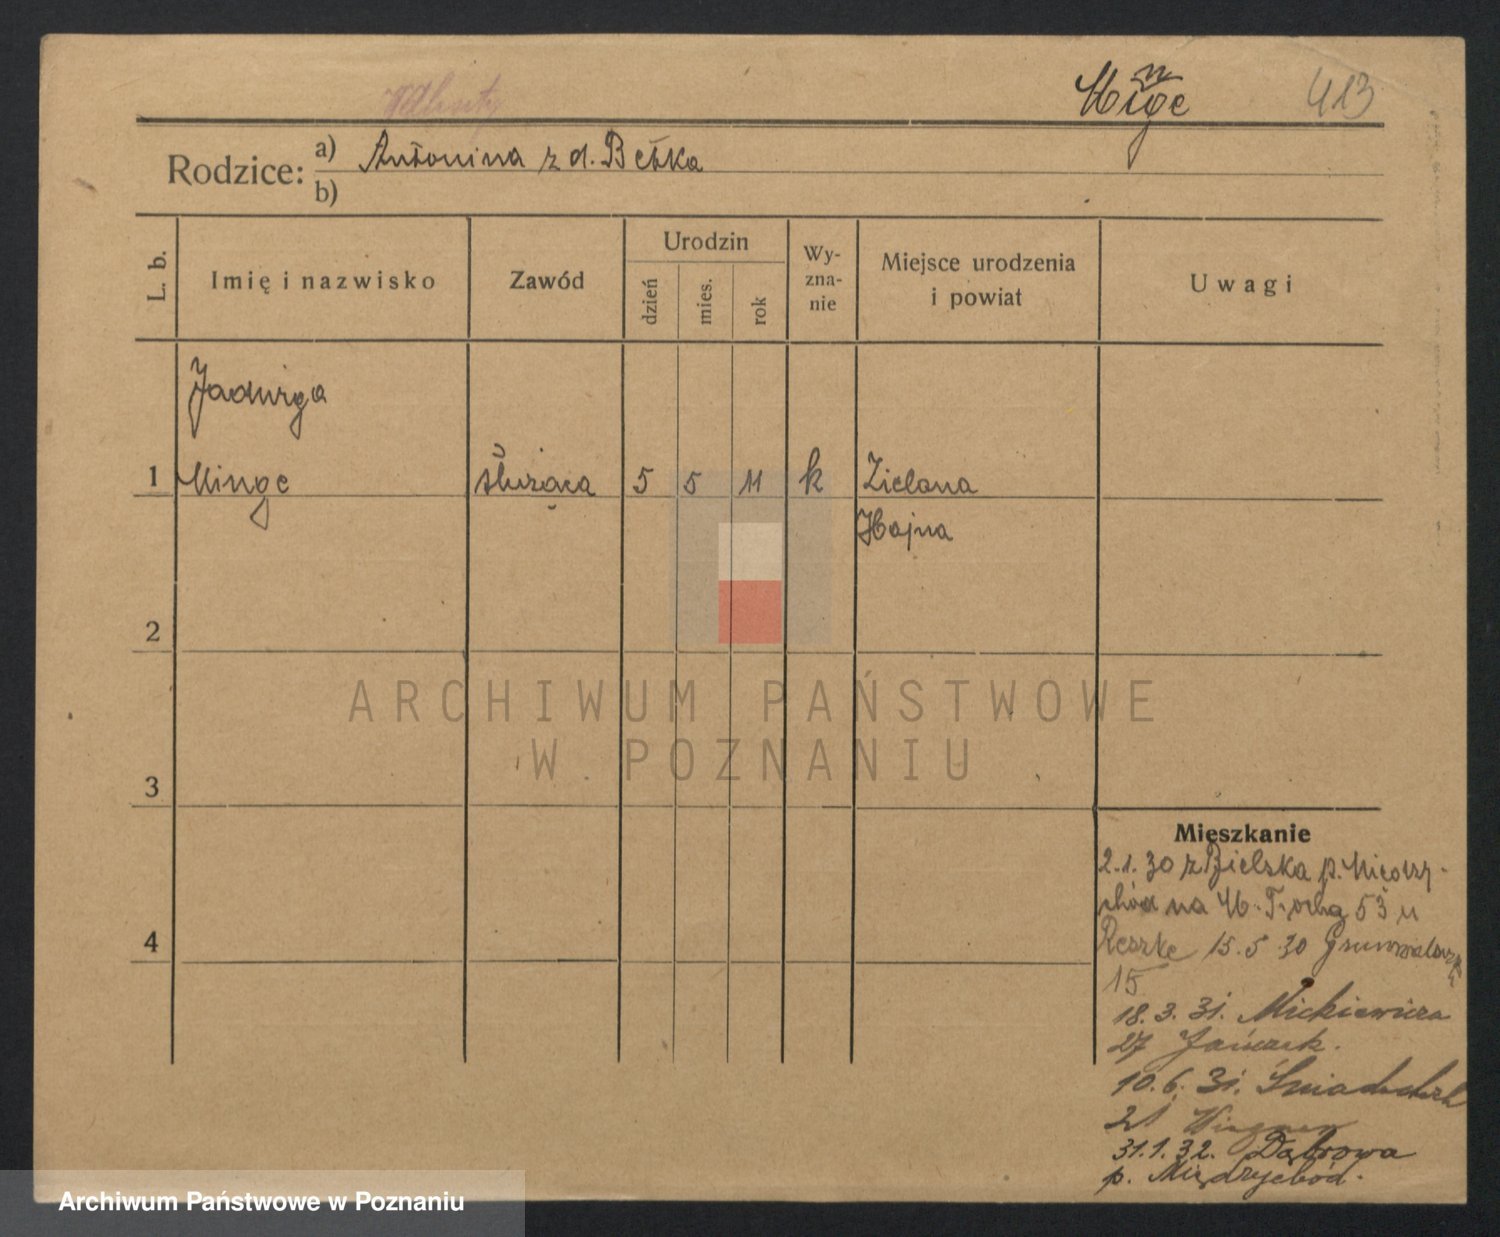 Minge 413
Rodzice: a) Antonina z d. Betka
b)
L. b.
Imię i nazwisko
Zawód
Urodzin
dzień
mies.
rok
Wy-
zna-
nie
Miejsce urodzenia
i powiat
Uwagi
Jadwiga
1 Minge służąca 5 5 11 k Zielona
2
3
4
ARCHIWUM PAŃSTWOWE
W POZNANIU
Mieszkanie
2.1.30 z Bielska p.
na 53 u
Reszke 15.5.30
15
18.3.31. Mickiewicza
27
10.6.31.
21 Wegner
31.1.32. Dąbrowa
p. Międzychód.
Archiwum Państwowe w Poznaniu